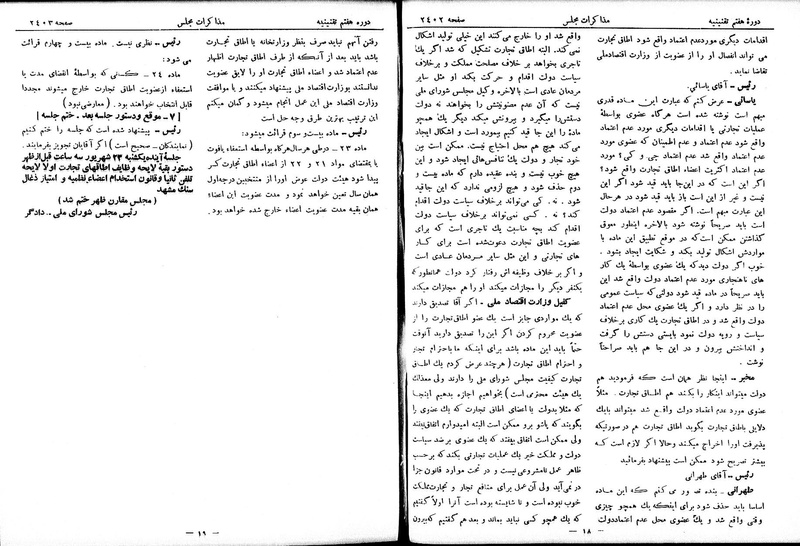 دوره هفتم تقنینیه
مذاکرات مجلس
صفحه ۲٤۰۲
اقدامات دیگری مورد عدم اعتماد واقع شود اطاق تجارت
می تواند انفصال او را از عضویت از وزارت اقتصاد ملی
تقاضا نماید.
رئیس ــ آقای یاسائی.
یاسائی ــ عرض کنم که عبارت این ماده قدری
مبهم است نوشته شده است هرگاه عضوی بواسطه
عملیات تجارتی یا اقدامات دیگری مورد عدم اعتماد
واقع شود عدم اعتماد و عدم اطمینان که عضوی مورد
عدم اعتماد واقع شد عدم اعتماد چی و کی؟ مورد
عدم اعتماد اکثریت اعضاء اطاق تجارت واقع شود؟
اگر این است که در این‌جا باید قید شود اگر این
نیست و غیر از این است باز باید قید شود در هر حال
این عبارت مبهم است. اگر مقصود عدم اعتماد دولت
است باید صریحاً نوشته شود بالاخره اینطور معوق
گذاشتن ممکن است که در موقع تطبیق این ماده با
مواردش اشکال تولید بکند و شکایت ایجاد بشود.
خوب اگر دولت دید که یک عضوی بواسطه یک کار
های ناهنجاری مورد عدم اعتماد دولت واقع شد این
باید صریحاً در ماده قید شود دولتی که سیاست عمومی
را در نظر دارد و اگر یک عضوی محل عدم اعتماد
دولت واقع شد و در اطاق تجارت یک کاری بر خلاف
سیاست و رویه دولت نمود بایستی دستش را گرفت
و انداختش بیرون و در این جا هم باید صراحتاً
نوشت.
مخبر ــ اینجا نظر همان است که فرمودید هم
دولت میتواند اینکار را بکند هم اطاق تجارت. مثلاً
عضوی مورد عدم اعتماد دولت واقع شد میتواند بایک
دلایلی باطاق تجارت بگوید اطاق تجارت هم در صورتیکه
پذیرفت اورا اخراج میکند و حالا اگر لازم است که
بیشتر تصریح شود ممکن است پیشنهاد بفرمائید
رئیس ــ آقای طهرانی
طهرانی ــ بنده تصور می کنم که این ماده
اساسا باید حذف شود برای اینکه یک همچو چیزی
وقتی واقع شد و یک عضوی محل عدم اعتماد دولت
واقع شد او را خارج می کنند این خیلی تولید اشکال
نمی کند. البته اطاق تجارت تشکیل که شد اگر یک
تاجری بخواهد بر خلاف مصلحت مملکت و بر خلاف
سیاست دولت اقدام و حرکت بکند او مثل سایر
مردمان عادی است بالاخره و کیل مجلس شورای ملی
نیست که آن عدم مصونیتش را بخواهند نه دولت
دستش را میگیرد و بیرونش میکند دیگر یک همچو
ماده را این جا قید کنیم بیمورد است و اشکال ایجاد
می کند هیچ هم محل احتیاج نیست. ممکن است بین
خود تجار و دولت یک تناقض‌هائی ایجاد شود و این
هیچ خوب نیست و بنده عقیده دارم که ماده بیست و
دوم حذف شود و هیچ لزومی ندارد که این جا قید
شود. نه. کی می‌تواند بر خلاف سیاست دولت اقدام
کند؟ نه. کسی نمی‌تواند بر خلاف سیاست دولت
اقدام کند بچه مناسبت یک تاجری است که برای
عضویت اطاق تجارت دعوت شده است برای کار
های تجارتی و این مثل سایر مردمان عادی است
و اگر بر خلاف وظیفه‌اش رفتار کرد دولت همانطور که
یکنفر دیگر را مجازات میکند او را هم مجازات میکند
کفیل وزارت اقتصاد ملی ــ اگر آقا تصدیق دارند
که یک مواردی جایز است یک عضو اطاق تجارت را از
عضویت محروم کردن اگر این را تصدیق دارید آنوقت
حتماً باید این ماده باشد برای اینکه ما با احترام تجار
و احترام اطاق تجارت (هر چند عرض کردم یک اطاق
تجارت کیفیت مجلس شورای ملی را دارند ولی معذالک
یک هیئت محترمی است) بخواهیم اجازه بدهیم اینجا
که مثلا بدولت یا اعضای اطاق تجارت که یک عضوی را
بگویند که پاشو برو ممکن است البته امیدوارم اتفاق نیفتد
ولی ممکن است اتفاق بیفتد که یک عضوی بر ضد سیاست
دولت و مملکت خیر یک عملیات تجارتی بکند که بر حسب
ظاهر عمل نامشروعی نیست و در تحت موارد قانون جزا
در نمی‌آید ولی آن عمل برای منافع تجار و تجارت مملکت
خوب نبوده است و ناشایسته بوده است آنرا اولاً گفتیم
که یک همچو کسی نباید بماند و بعد هم گفتیم که بیرون
ــ ۱۸ ــ
دوره هفتم تقنینیه
مذاکرات مجلس
صفحه ۲٤۰۳
رفتن آنهم نباید صرف بنظر وزارتخانه یا اطاق تجارت
باشد باید بعد از آنکه از طرف اطاق تجارت اظهار
عدم اعتماد شد و اعضاء اطاق تجارت او را لایق عضویت
ندانستند بوزارت اقتصاد ملی پیشنهاد میکنند و با موافقت
وزارت اقتصاد ملی این عمل انجام میشود و گمان میکنم
این ترتیب بهترین طرف وجه حل است
رئیس ــ ماده بیست و سوم قرائت میشود:
ماده ۲۳ ــ در طی هر سال هرگاه بواسطه استعفاء یا فوت
یا بمقتضای مواد ۲۱ و ۲۲ از اعضاء اطاق تجارت کسر
پیدا شود هیئت دولت عوض اورا از منتخبین درجه اول
همان سال تعین خواهد نمود و مدت عضویت این اعضاء
همان بقیه مدت عضویت اعضاء خارج شده خواهد بود.
رئیس ــ نظری نیست. ماده بیست و چهارم قرائت
می شود:
ماده ۲٤ ــ کسانی که بواسطه انقضای مدت یا
استعفاء از عضویت اطاق تجارت خارج میشوند مجددا
قابل انتخاب خواهند بود. (معارضی نبود)
[۷ ــ موقع و دستور جلسه بعد. ختم جلسه]
رئیس ــ پیشنهاد شده است که جلسه را ختم کنیم
(نمایندگان ــ صحیح است) اگر آقایان تجویز بفرمایند.
جلسه آینده یکشنبه ۲۳ شهریور سه ساعت قبل از ظهر
دستور بقیه لایحه وظایف اطاقهای تجارت اولا لایحه
تلفن ثانیا وقانون استخدام اعضاء نظمیه و امتیاز ذغال
سنك مشهد.
(مجلس مقارن ظهر ختم شد)
رئیس مجلس شورای ملی ــ دادگر
ــ ۱۹ ــ